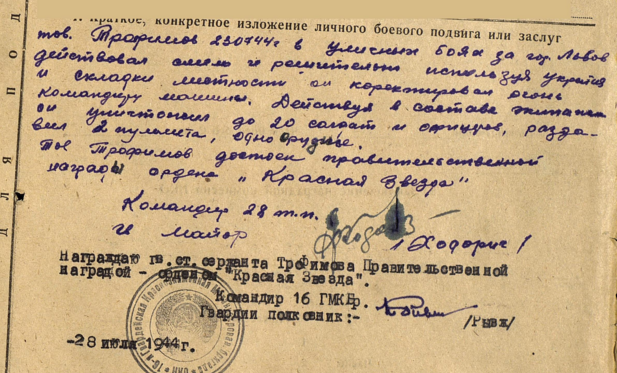 I. Краткое, конкретное изложение личного боевого подвига или заслуг
тов. Трофимов 230744г в уличных боях за гор. Львов
действовал смело и решительно используя укрытия
и складки местности он коректировал огонь
командиру машины. Действуя в составе экипажа
он уничтожил до 20 солдат и офицеров, разда-
вил 2 пулемёта, одно орудие.
тов Трофимов достоин правительственной
награды ордена "Красная Звезда"
Командир 28 т.п.
майор /Ходорич/
Награждаю гв.ст.сержанта Трофимова Правительственной
наградой - орденом "Красная Звезда".
Командир 16 ГМКБр.
Гвардии полковник:- /Рывж/
-28 июля 1944г.
ДЛЯ ПОД